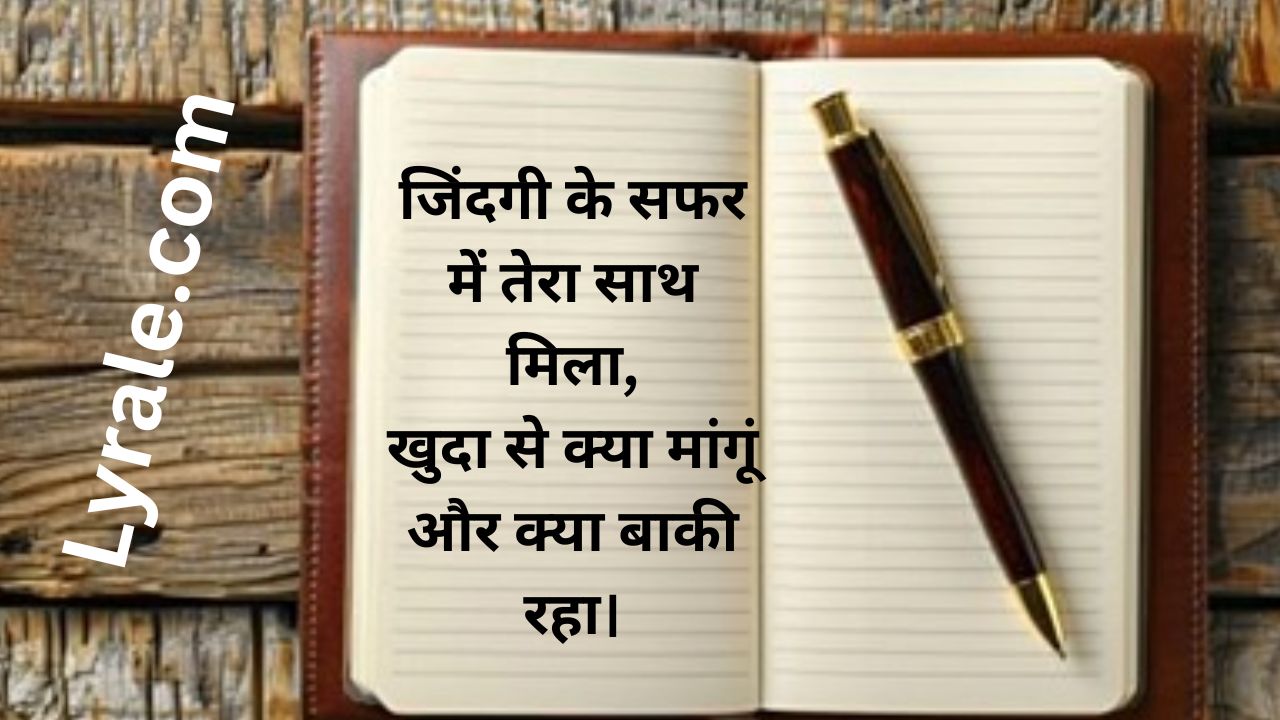 Lyrale.com
जिंदगी के सफर
में तेरा साथ
मिला,
खुदा से क्या मांगूं
और क्या बाकी
रहा।